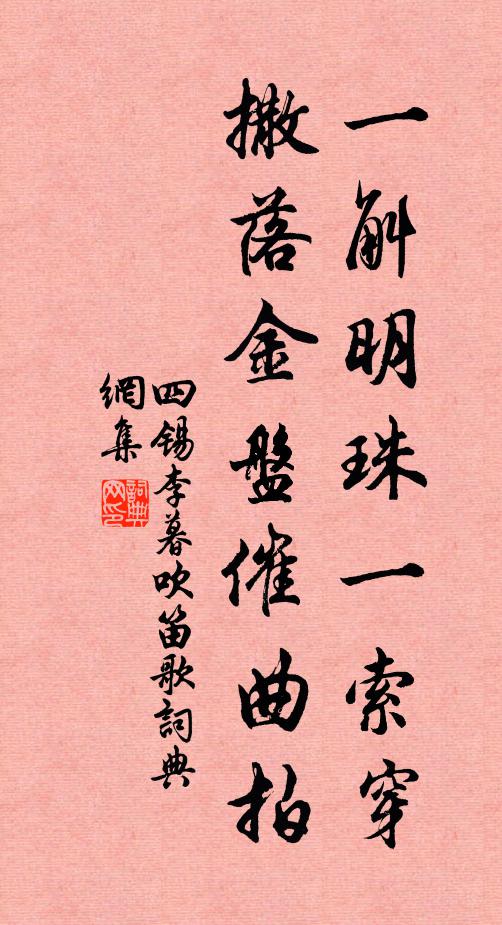 一斛明珠一索穿
撒落金盤催曲拍
四錫李暮吹笛歌詞典
網集
詞典
网印